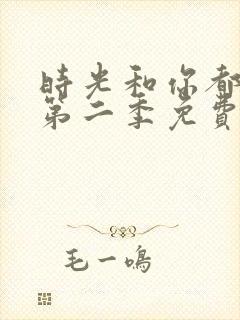 時光和你都
第二季免費
毛一鳴